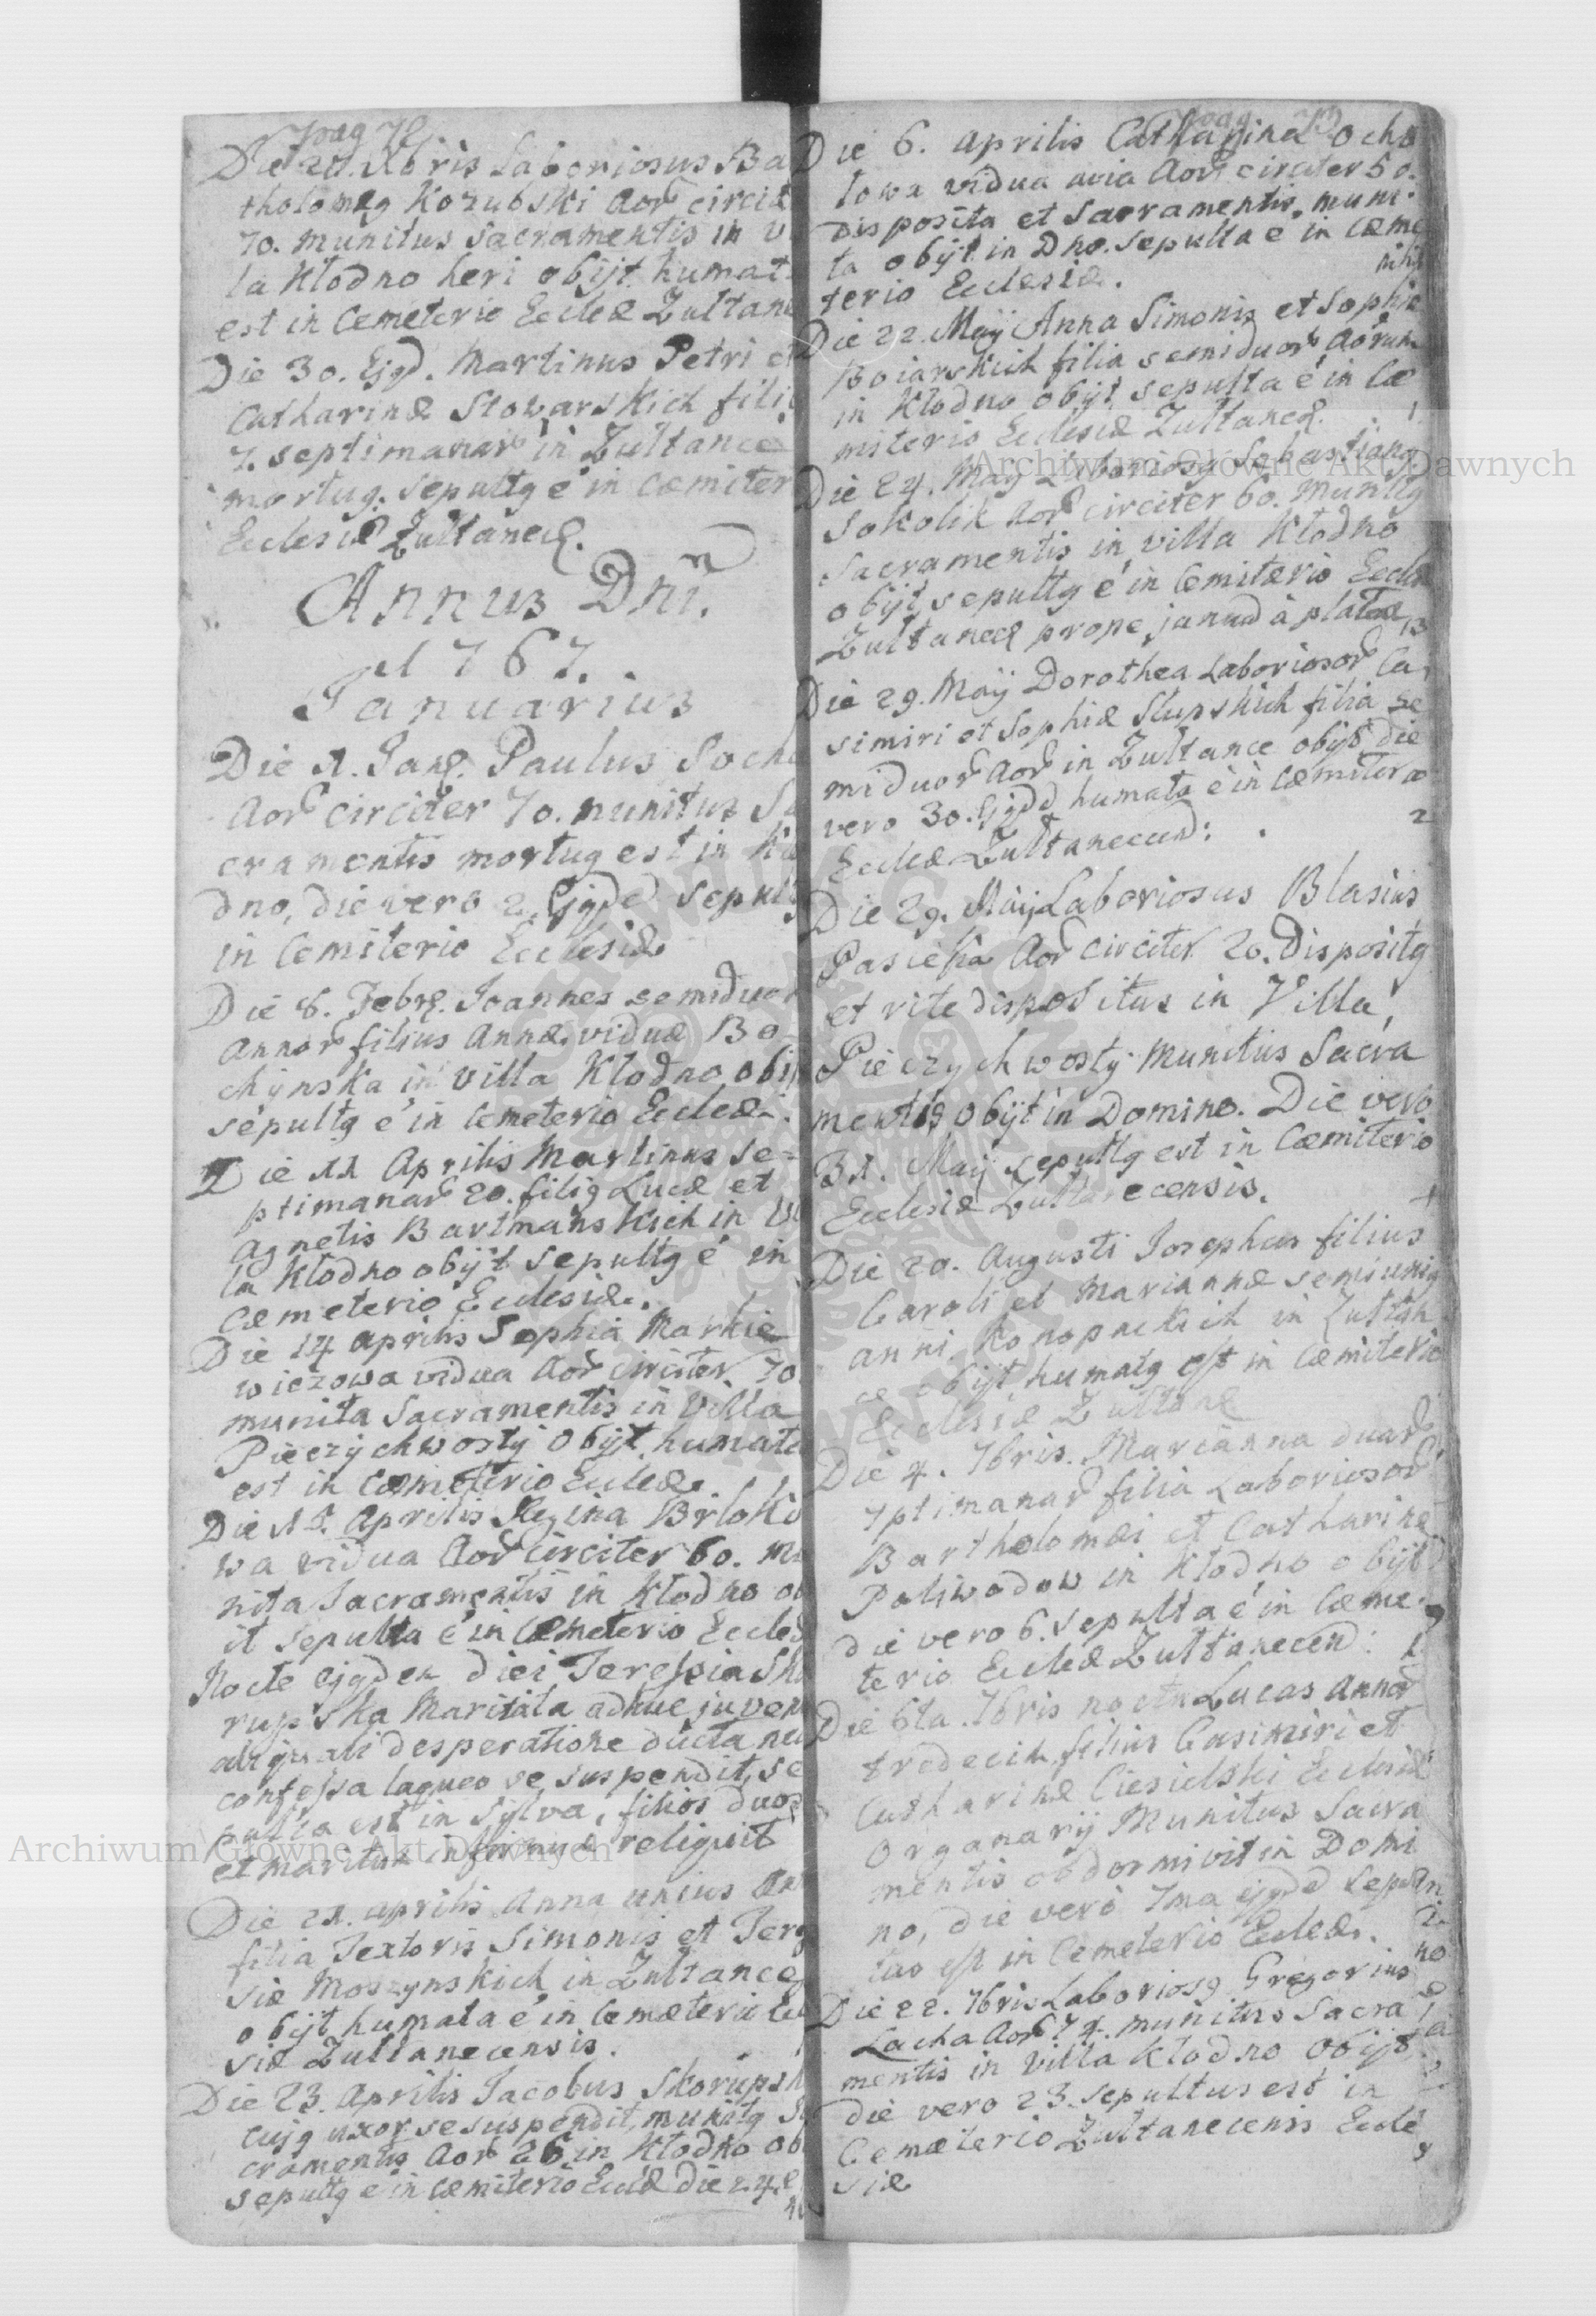 pag 72
Die 20. Xbris Laboriosus Ba
tholomeg Kozubski Aor circit
70. munitus sacramentis in v
la Kłodno heri obijt humat
est in Cemeterio Eccleæ Zultane
Die 30. Ejgd. Martinus Petri et
Catharinæ Stolarskich fili
7. septimanar in Zultance
mortug. sepultg e in Cœmiter
Ecclesiæ Zultanec.
Annus Dni.
1767.
Januarius
Die 1. Jan. Paulus Socha
Aor circiter 70. munitus Sa
cramentis mortug est in Kło
dno, die vero 2. Ejgde sepultg
in Cemiterio Ecclesiæ
Die 8. Febr. Joannes semiduor
Annor filius Annæ viduæ Bo
chynska in villa Kłodno obij
sepultg e in Cemeterio Eccleæ.
Die 11 Aprilis Martinus se=
ptimanar 20. filig Lucæ et
Agnetis Bartmanskich in Vil
la Kłodno obijt sepultg e in
Cæmeterio Ecclesiæ.
Die 14 Aprilis Sophia Markie
wiczowa vidua Aor circiter 70
munita Sacramentis in Villa
Pieczychwosty obijt, humata
est in Cœmeterio Eccleæ.
Die 15. Aprilis Regina Brloko
wa vidua Aor circiter 60. Mu
nita Sacramentis in Kłodno ob
it sepulta e in Cæmeterio Eccleæ
Nocte ejgdem diei Teressia Sko
rupska Maritata adhuc juven
aliquali desperatione ducta nec
confessa laqueo se suspendit, se
pulta est in sylva, filios duos
et maritum infirmum reliquit
Die 21. aprilis Anna unius An
filia Textoris Simonis et Tere
siæ Moszynskich in Zultance
obijt humata e in Cemæterio Ecc
siæ Zultanecensis.
Die 23. Aprilis Jacobus Skorupsk
cujg uxor se suspendit, munitg Sa
cramentis Aor 26 in Kłodno ob
sepultg e in Cæmiterio Eccleæ die 24.
pag 73
Die 6. Aprilis Catharina Ocho
towa vidua avia Aor circiter 50.
Disposita et Sacramentis muni
ta obijt in Dno. sepulta e in Cæme
terio Ecclesiæ.
Die 22. Maij Anna Simonis et Sophiæ
Boiarskich filia semiduor Aorum
in Kłodno obijt, sepulta e in Cæ
misterio Ecclesiæ Zultanec.
Die 24. Maij Laboriosg Sebastiang
Sokolik Aor circiter 60. munitg
Sacramentis in villa Kłodno
obijt, sepultg e in Cemiterio Eccleæ
Zultanec prope januā à plateæ
Die 29. Maij Dorothea Laboriosor Ca
simiri et Sophiæ Slupskich filia se
miduor Aor in Zultance obijt die
vero 30. Ejgdd humata e in Cæmitero
Eccleæ Zultanecen:
Die 29. Maij Laboriosus Blasius
Pasieka Aor circiter 20. Dispositg
et rite dispositus in Villa
Pieczychwosty munitus Sacra
mentis obijt in Domino. Die vero
31. Maij sepultg est in Cœmiterio
Ecclesiæ Zultanecensis.
Die 20. Augusti Josephus filius
Caroli et Mariannæ semiunig
anni Konopnickich in Zultan
ce obijt, humatg est in Cœmiterio
Ecclesiæ Zultane
Die 4. 7bris. Marianna duar
7ptimanar filia Laboriosor
Bartholomæi et Catharinæ
Paliwodow in Kłodno obijt
die vero 6. sepulta e in Cæme
terio Eccleæ Zultanecen:
Die 6ta. 7bris noctu Lucas Annor
tredecim filius Casimiri et
Catharinæ Ciesielski Ecclesiæ
Organarij Munitus Sacra
mentis obdormivit in Domi
no, die vero 7ma ejgde sepul
tus est in Cemeterio Eccleæ.
Die 22. 7bris Laboriosg Gregorius
Lacha Aor 74. munitus Sacra
mentis in villa Kłodno obijt
die vero 23. sepultus est in
Cemæterio Zultanecensis Eccle
siæ
Archiwum Główne Akt Dawnych
Archiwum Główne Akt Dawnych